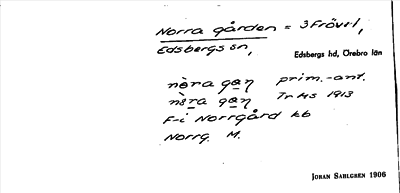 Norra gården = 3 Frövi,
Edsbergs sn,
Edsbergs hd, Örebro län
nòra gan prim.-ant.
nòra gan Tr Hs 1913
F-i Norrgård kb
Norrg. M.
JOHAN SAHLGREN 1906